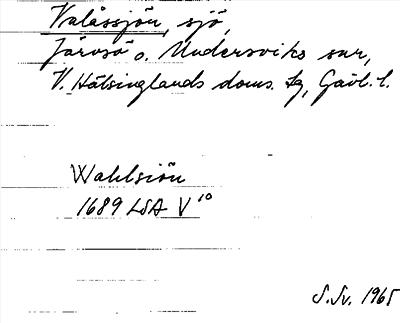 Valåssjön, sjö,
Järvsö o. Undersviks snr,
V. Hälsinglands doms. tg, Gävl. l.
Wahlsiön
1689 LSA V 10
S.Sv. 1965